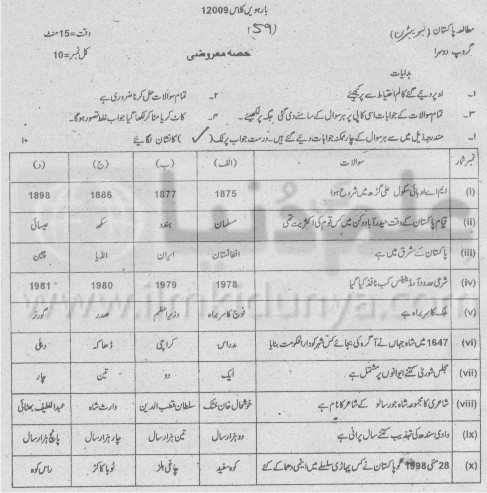 بارہویں کلاس 12009
مطالعہ پاکستان (نیو سکیم) (59) وقت=15 منٹ
گروپ دوسرا حصہ معروضی کل نمبر=10
ہدایات
۱۔ اوپر دیئے گئے کالم احتیاط سے پُر کیجئے ۲۔ تمام سوالات حل کرنا ضروری ہے
۳۔ تمام سوالات کے جوابات اسی کاپی پر ہر سوال کے سامنے دی گئی جگہ پر لکھیئے ۴۔ کاٹ کر یا مٹا کر لکھا گیا جواب غلط تصور ہوگا۔
۱۔ مندرجہ ذیل میں سے ہر سوال کے چار ممکنہ جوابات دیئے گئے ہیں۔ درست جواب پر ٹک (✓) کا نشان لگائیے ۱۰
نمبر شمار سوالات (الف) (ب) (ج) (د)
(i) ایم اے او ہائی سکول علی گڑھ میں شروع ہوا 1875 1877 1886 1898
(ii) قیام پاکستان کے وقت حیدر آباد دکن میں کس قوم کی اکثریت تھی مسلمان ہندو سکھ عیسائی
(iii) پاکستان کے مشرق میں ہے افغانستان ایران انڈیا چین
(iv) شرعی حدود آرڈیننس کب نافذ کیا گیا 1978 1979 1980 1981
(v) ملک کا سربراہ ہے فوج کا سربراہ وزیر اعظم صدر گورنر
(vi) 1647 میں شاہ جہاں نے آگرہ کی بجائے کس شہر کو دارالحکومت بنایا مدراس کراچی ڈھاکہ دہلی
(vii) مجلس شوریٰ کتنے ایوانوں پر مشتمل ہے ایک دو تین چار
(viii) شاعری کا مجموعہ شاہ جو رسالو کے شاعر کا نام ہے خوشحال خان خٹک سلطان قطب الدین وارث شاہ عبداللطیف بھٹائی
(ix) وادی سندھ کی تہذیب کتنے سال پرانی ہے دو ہزار سال تین ہزار سال چار ہزار سال پانچ ہزار سال
(x) 28 مئی 1998 کو پاکستان نے کس پہاڑی سلسلے میں ایٹمی دھماکے کئے کوہ سفید چاغی ہلز ٹوبا کاکڑ راس کوہ
علم کی دُنیا
www.ilmkidunya.com